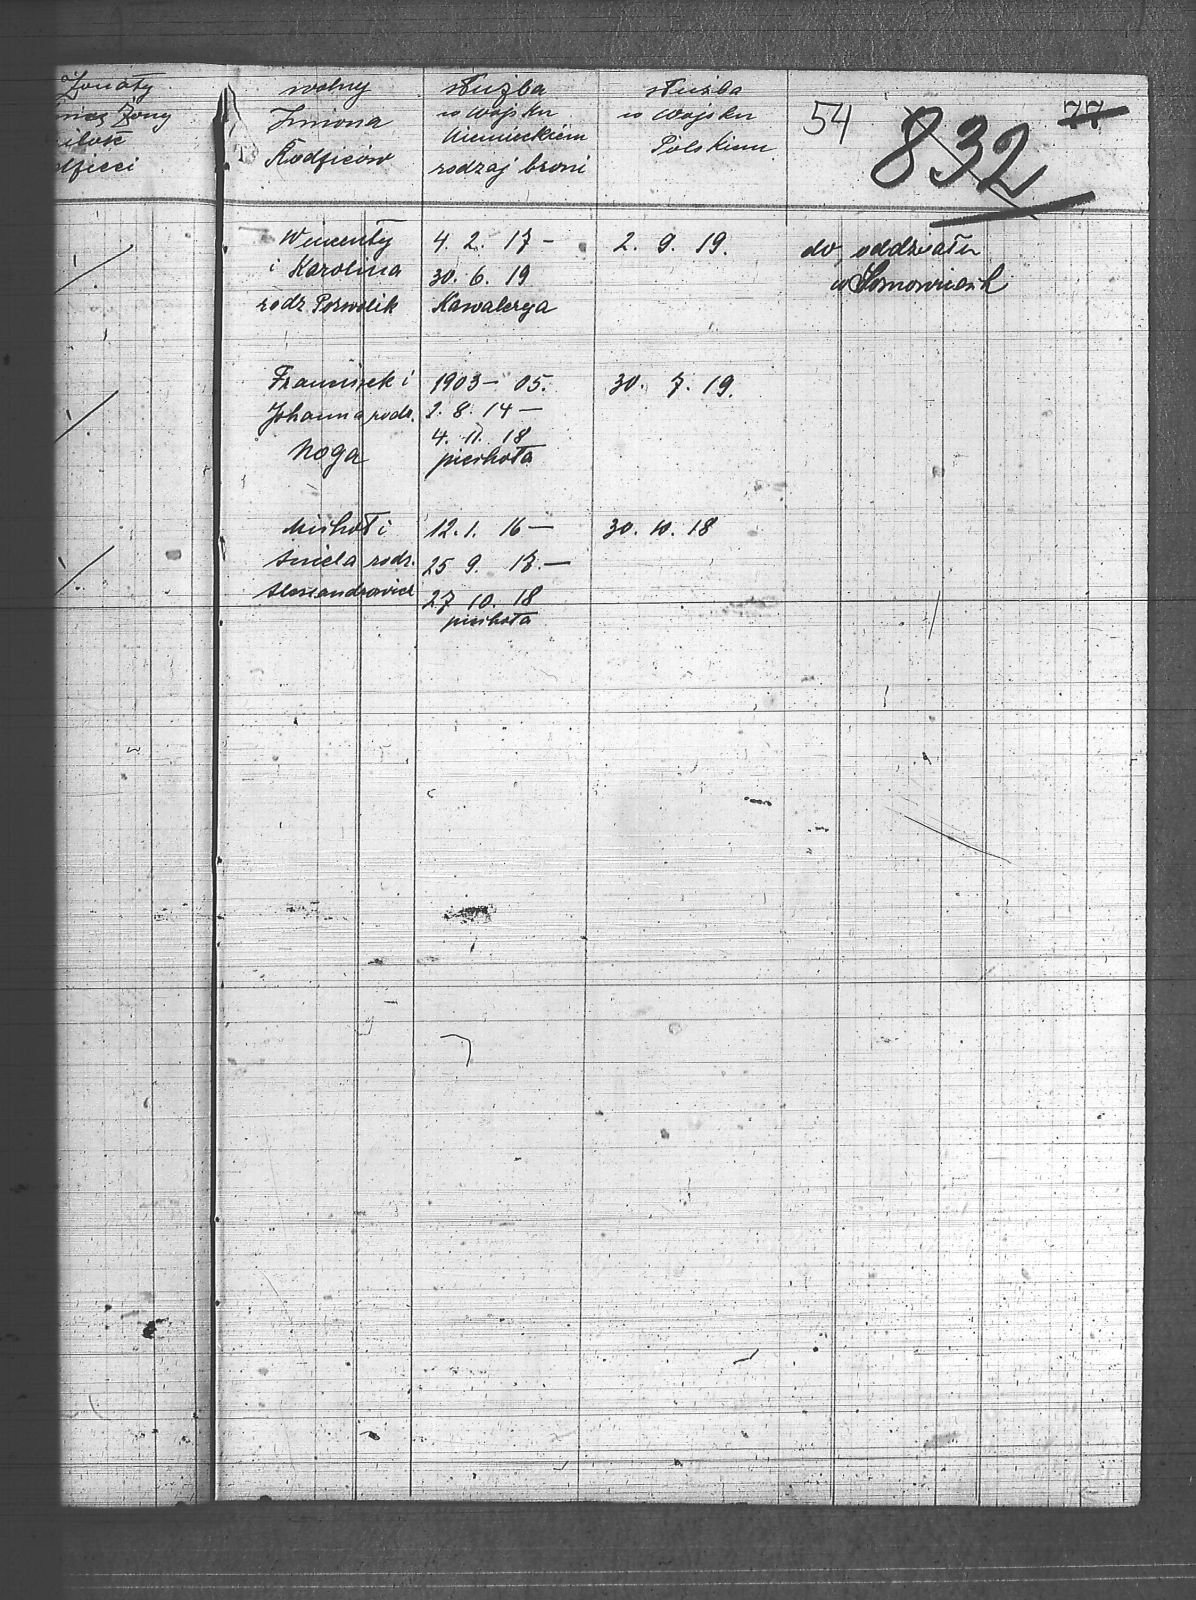 Żonaty
Żony
wolny
Imiona
Rodziców
służba
w wojsku
Niemieckiem
rodzaj broni
służba
w Wojsku
Polskiem
54
832
77
Wincenty
i Karolina
rodz Poswolik
4. 2. 17 -
30. 6. 19
Kawalerya
2. 9. 19.
do oddziału
w Sosnowicach
Franciszek i
Johanna rodz.
Noga
1903 - 05.
2. 8. 14 -
4. 11. 18
piechota
30. 7. 19.
Michał i
Aniela rodz.
12. 1. 16 -
25 9. 17. -
27 10. 18
piechota
30. 10. 18